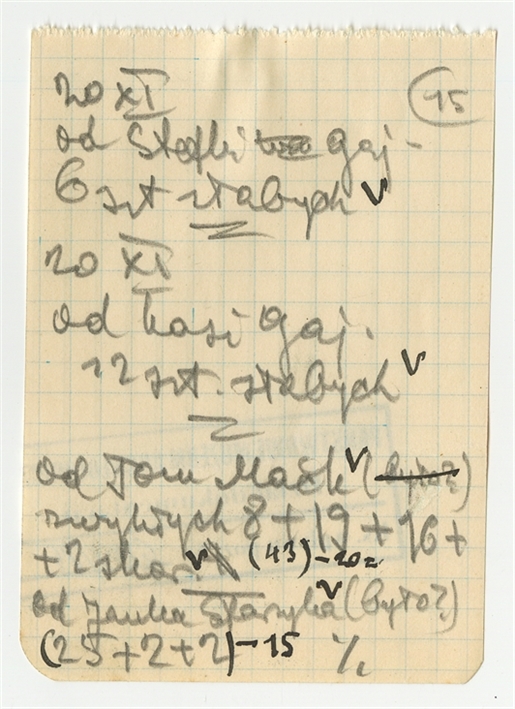 15
20 XI
od Stefki Gaj-
6 szt słabych v
20 XI
od Kasi Gaj.
12 szt. słabych v
od Tom Maćk v (było?)
zwykłych 8 + 19 + 16 +
+ 2 skor. v (43) - 20=
od Janka Starzyka v (było?)
(25 + 2 + 2) - 15 %